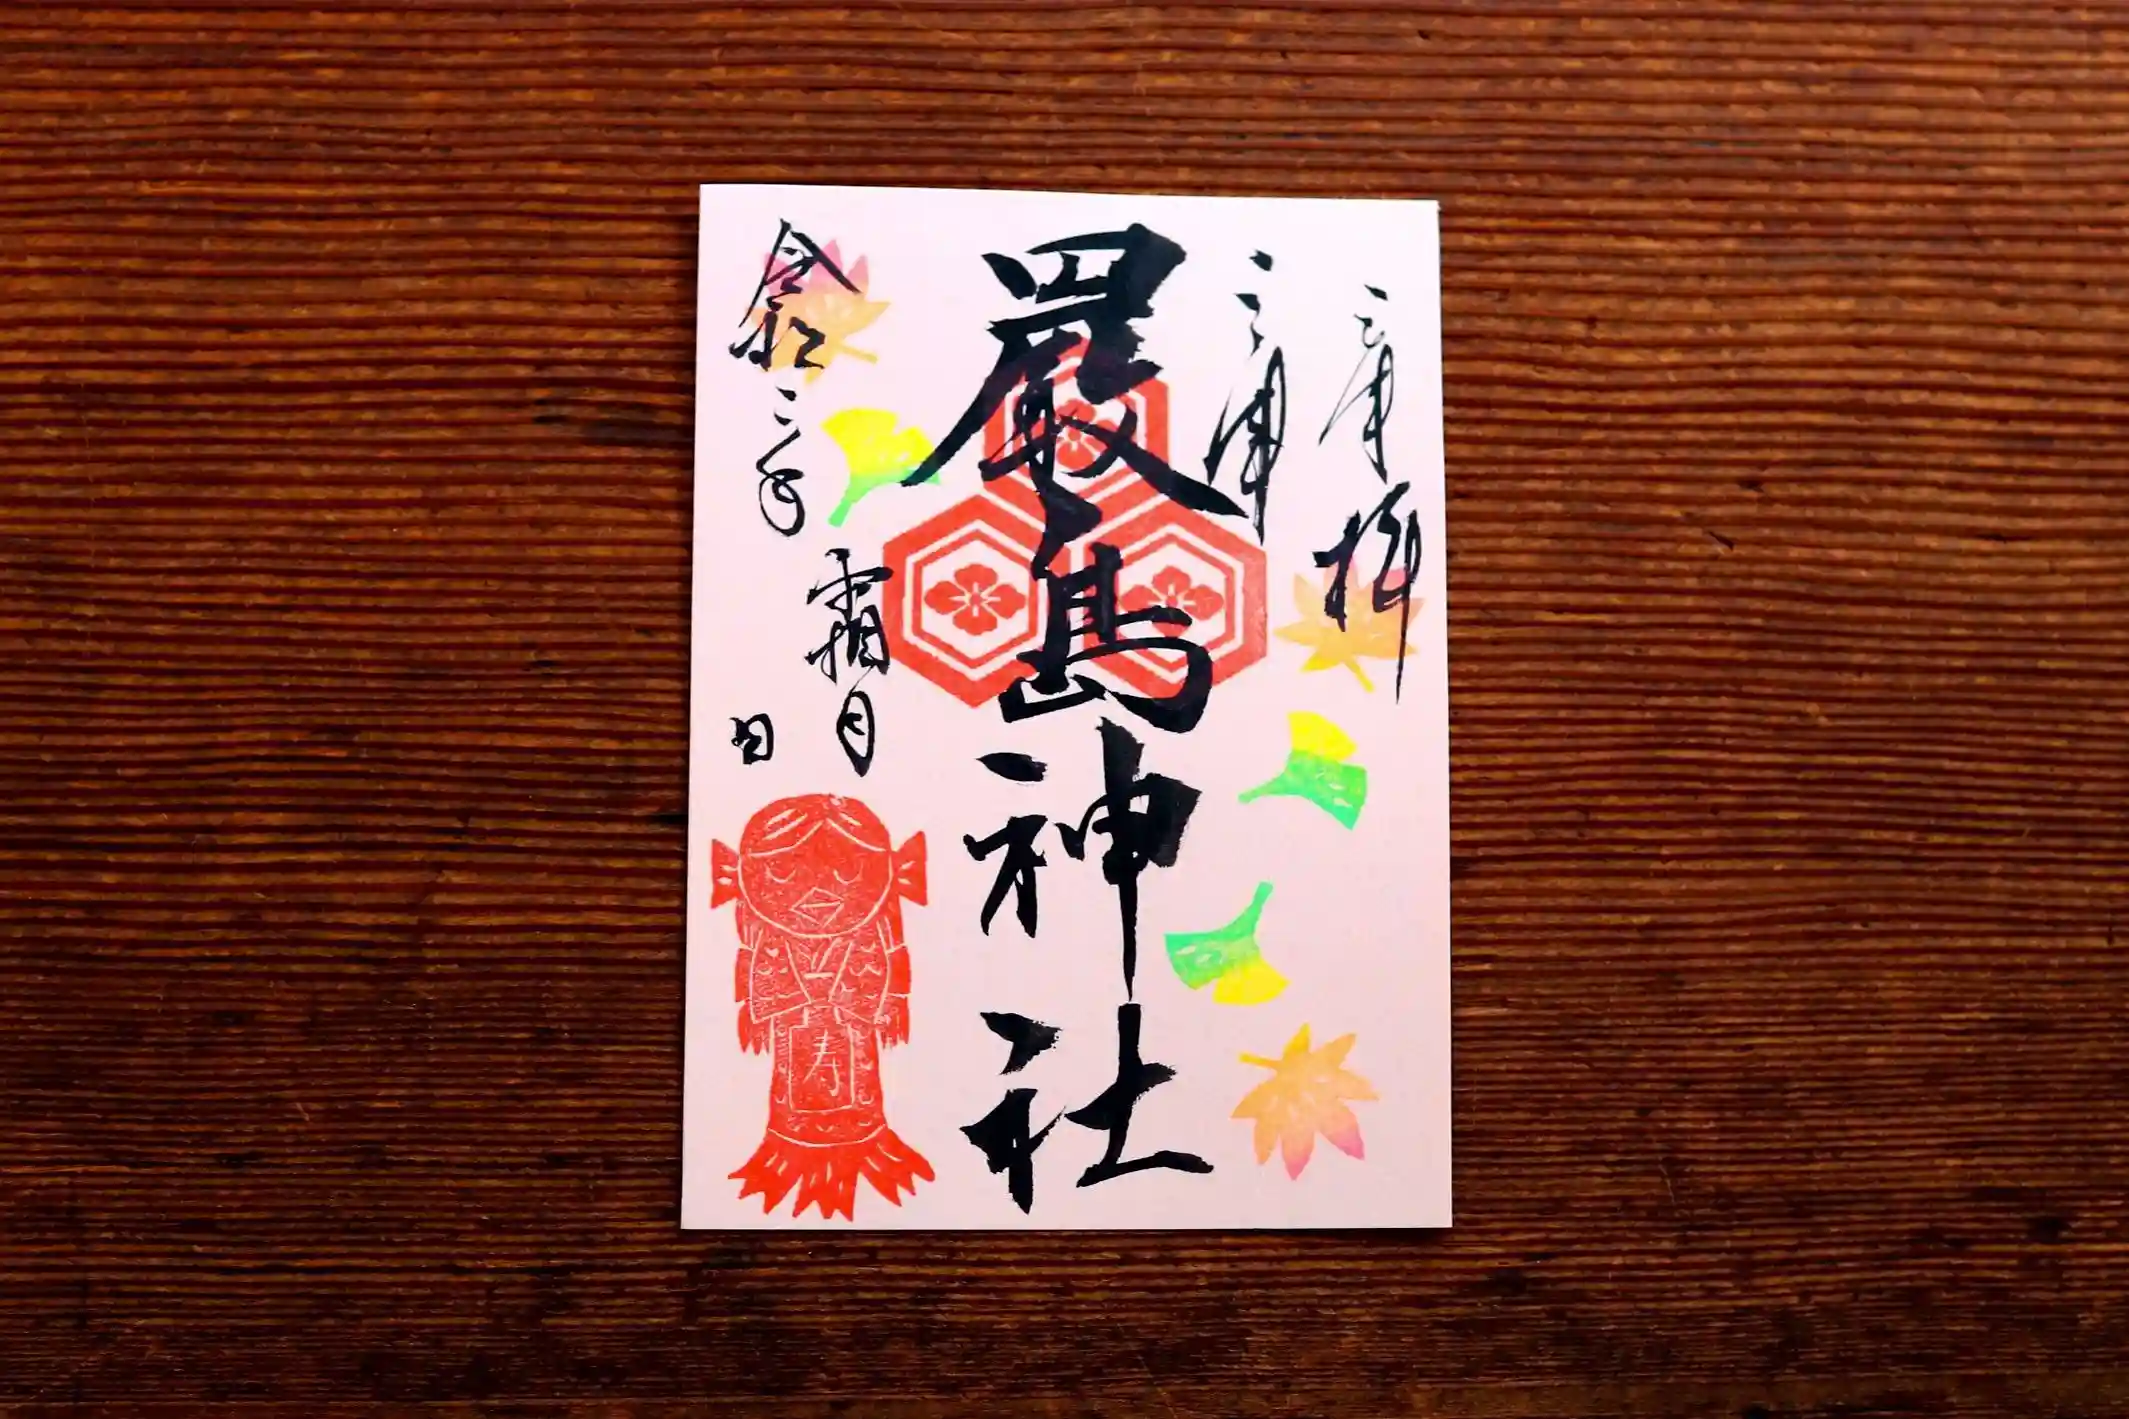 奉拝
嚴島神社
令和二年
霜月
日
寿